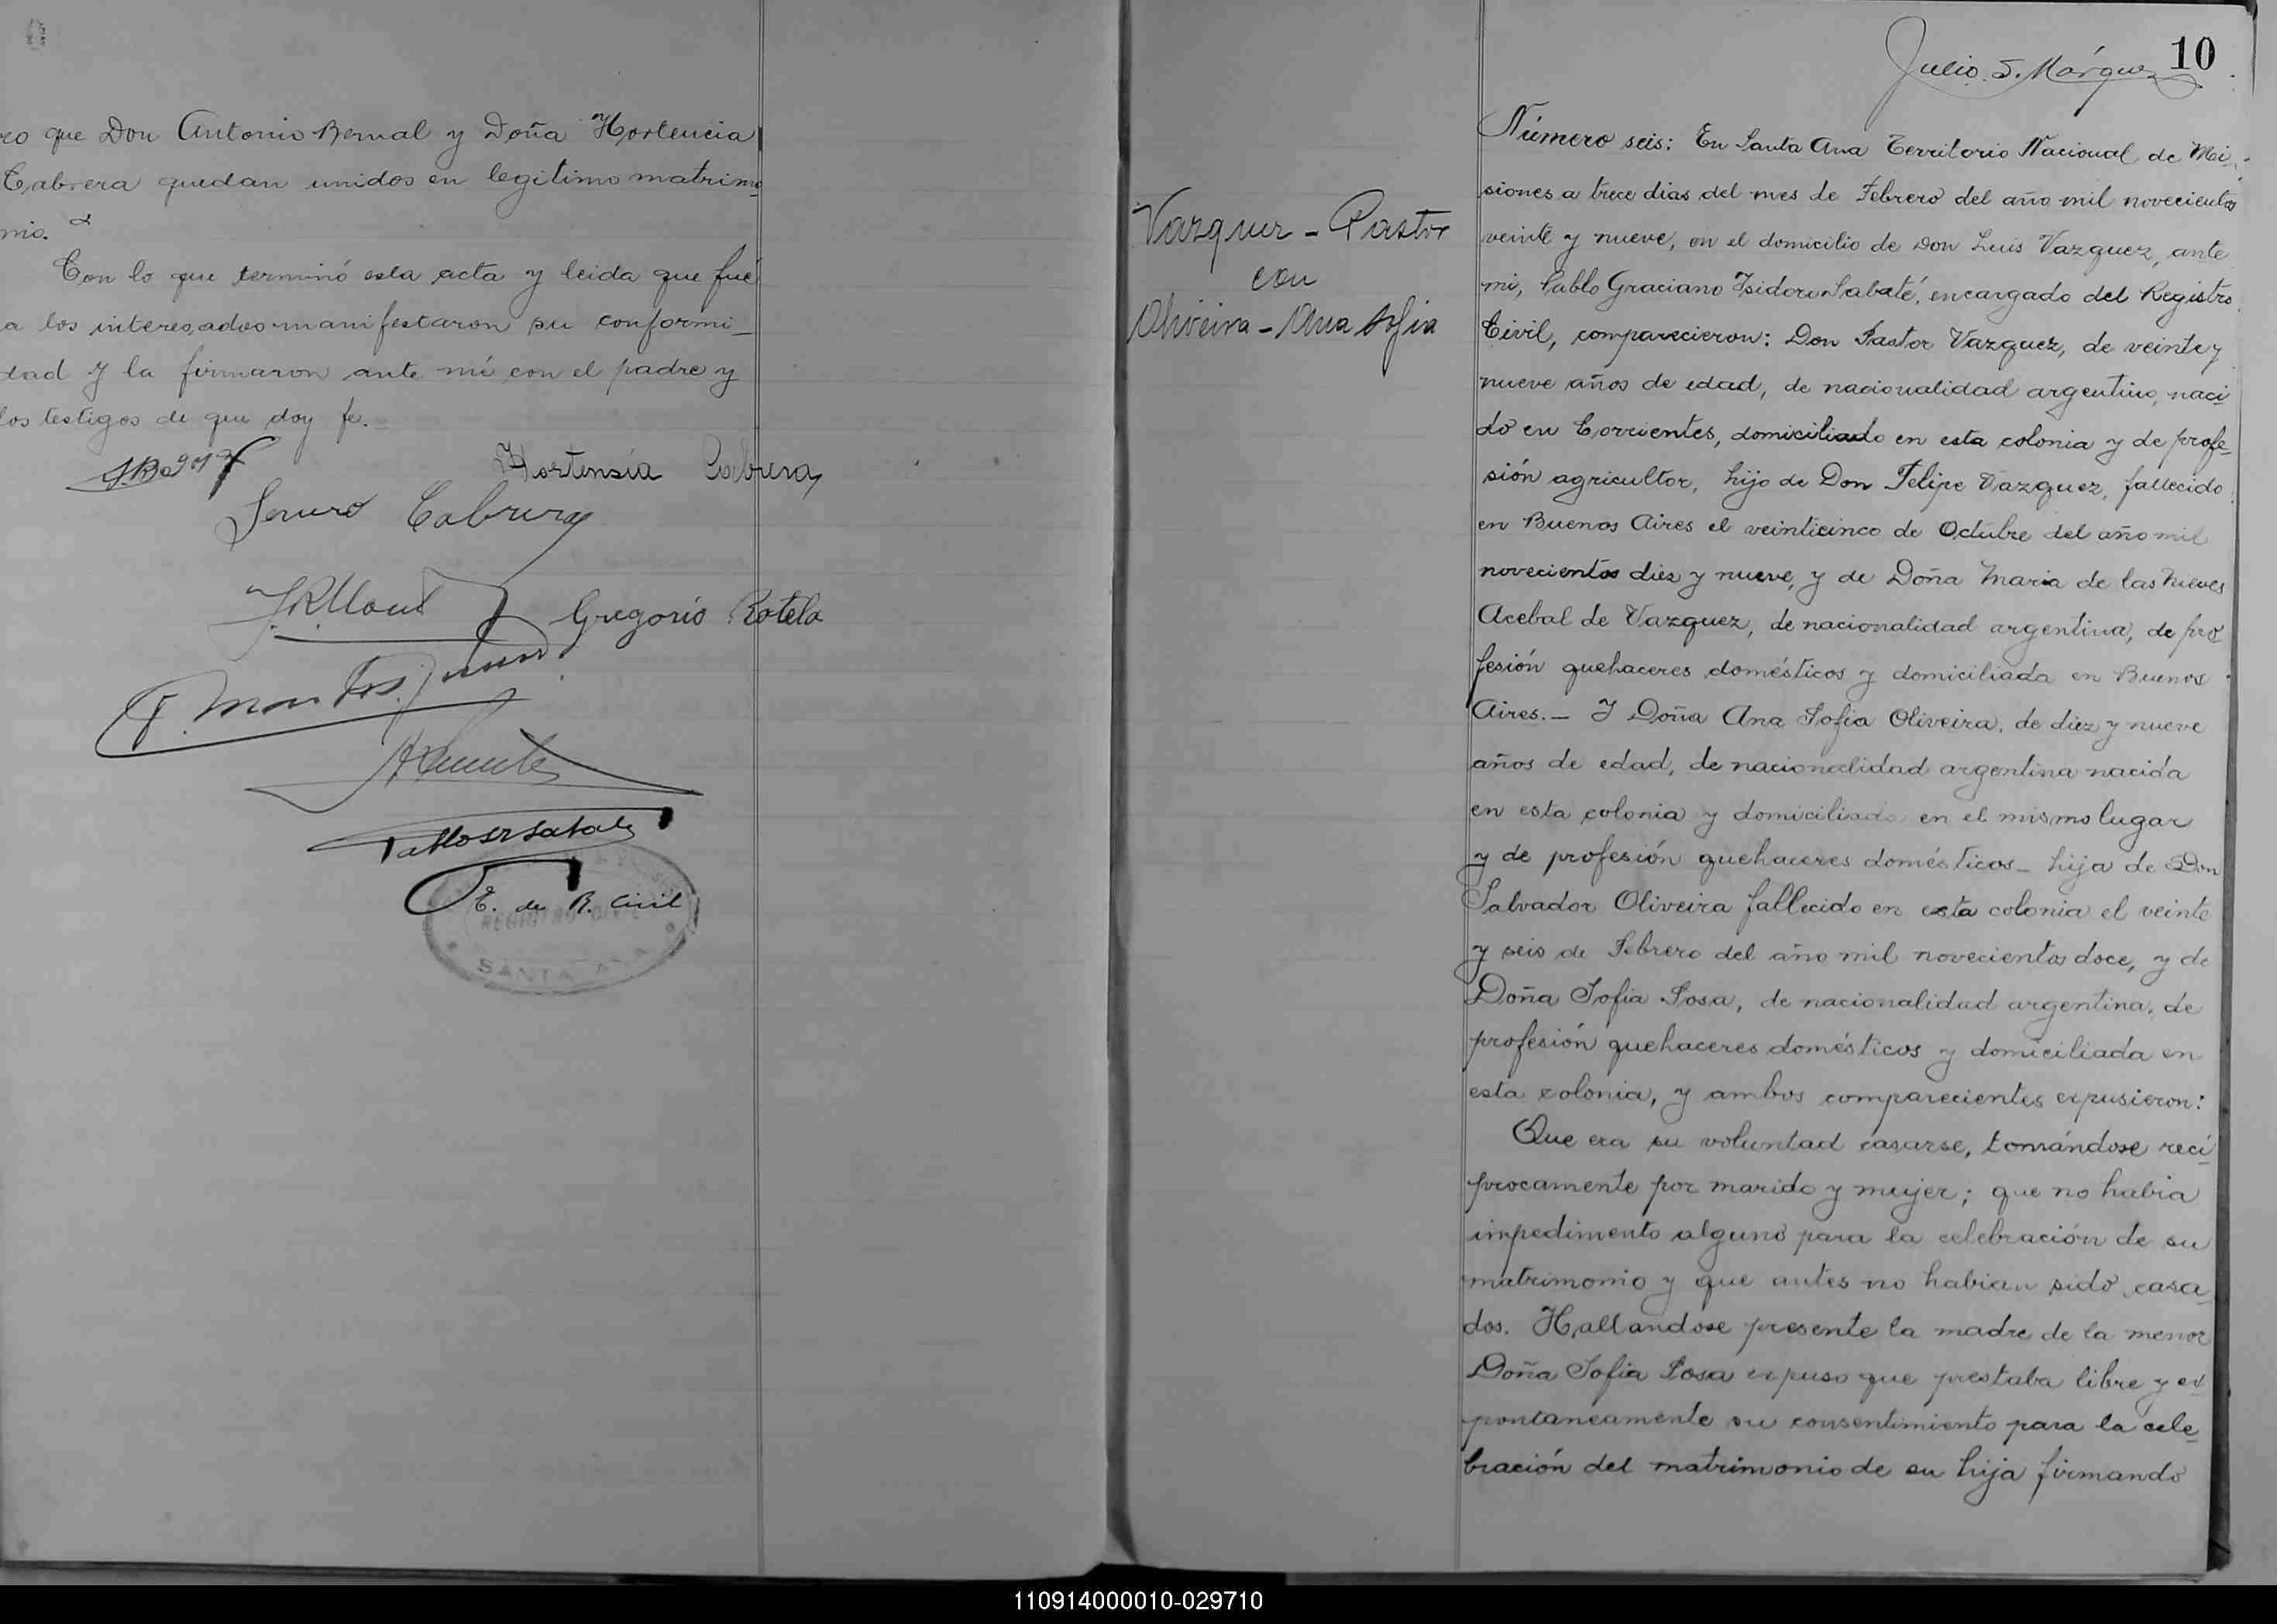 ro que Don Antonio Bernal y Doña Hortencia
Cabrera quedan unidos en legitimo matrimo
nio.
Con lo que terminó esta acta y leida que fué
a los interesados manifestaron su conformi_
dad y la firmaron ante mí con el padre y
los testigos de que doy fe.
Hortensia Cabrera
Cabrera
Gregorio Rotela
E. de R. Civil
REGISTRO CIVIL
SANTA ANA
10
Julio S. Márquez
Vazquez - Pastor
con
Oliveira - Ana Sofia
Número seis: En Santa Ana Territorio Nacional de Mi
siones a trece dias del mes de Febrero del año mil novecientos
veinte y nueve, en el domicilio de Don Luis Vazquez, ante
mi, Pablo Graciano Isidoro Sabaté, encargado del Registro
Civil, comparecieron: Don Pastor Vazquez, de veinte y
nueve años de edad, de nacionalidad argentino, naci
do en Corrientes, domiciliado en esta colonia y de profe_
sión agricultor, hijo de Don Felipe Vazquez, fallecido
en Buenos Aires el veinticinco de Octubre del año mil
novecientos diez y nueve, y de Doña Maria de las Nieves
Acebal de Vazquez, de nacionalidad argentina, de pro
fesión quehaceres domésticos y domiciliada en Buenos
Aires._ Y Doña Ana Sofia Oliveira, de diez y nueve
años de edad, de nacionalidad argentina nacida
en esta colonia y domiciliada en el mismo lugar
y de profesión quehaceres domésticos_ hija de Don
Salvador Oliveira fallecido en esta colonia el veinte
y seis de Febrero del año mil novecientos doce, y de
Doña Sofia Sosa, de nacionalidad argentina, de
profesión quehaceres domésticos y domiciliada en
esta colonia, y ambos comparecientes expusieron:
Que era su voluntad casarse, tomándose reci
procamente por marido y mujer; que no habia
impedimento alguno para la celebración de su
matrimonio y que antes no habian sido casa
dos. Hallandose presente la madre de la menor
Doña Sofia Sosa expuso que prestaba libre y es
pontaneamente su consentimiento para la cele
bración del matrimonio de su hija firmando
110914000010-029710